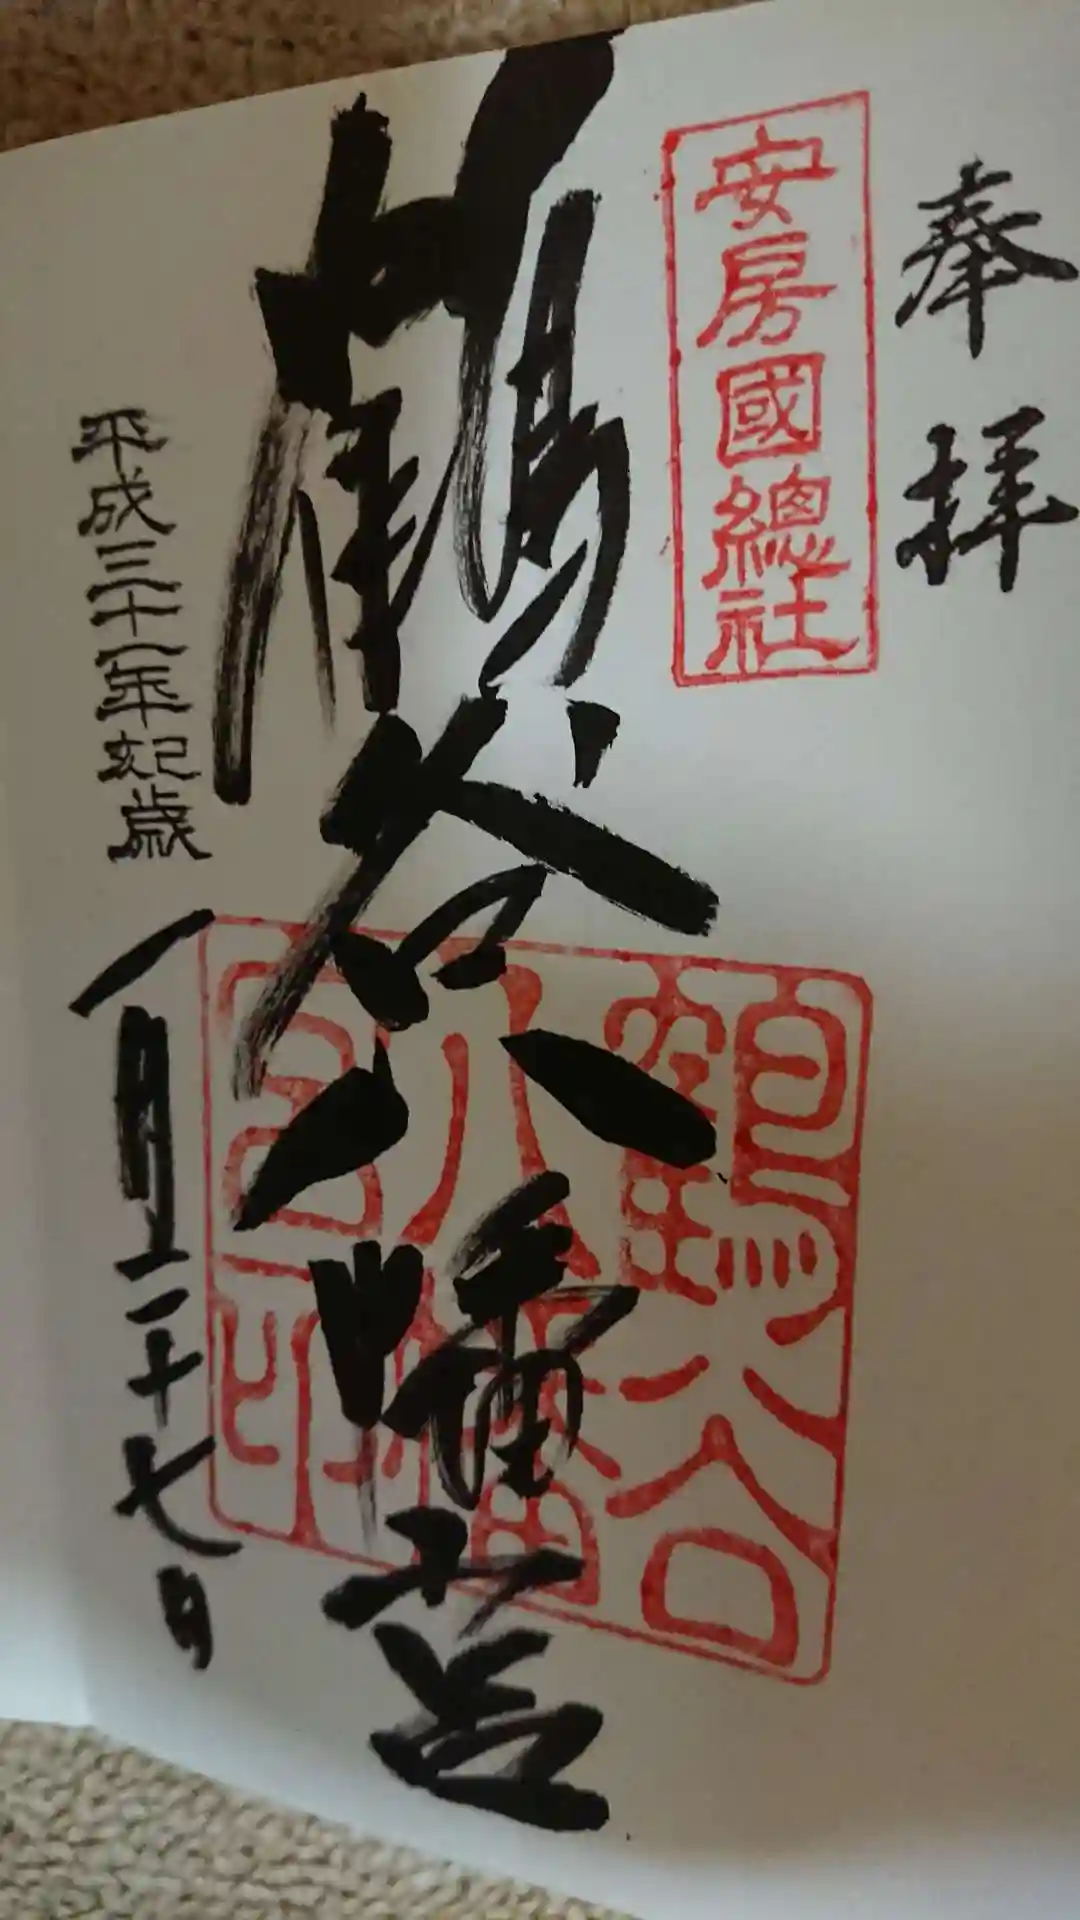 奉拝
安房國總社
鶴谷八幡宮
鶴谷
八幡
宮印
平成三十一年 己亥歳
一月二十七日